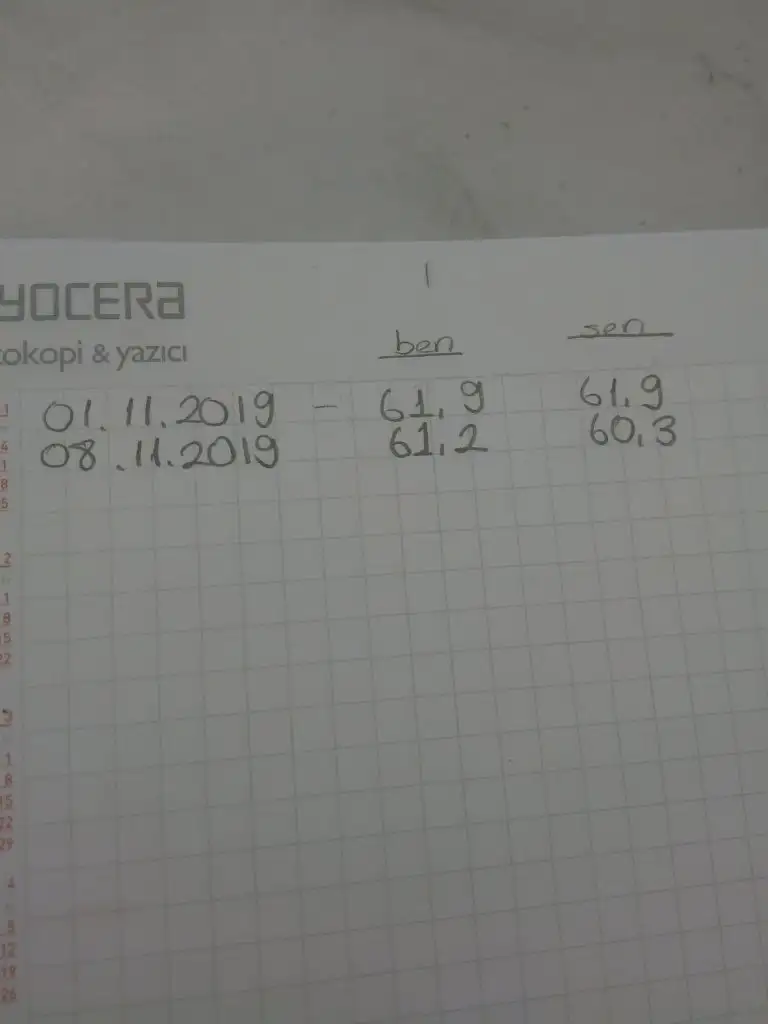 YOCERA
ben sen
okopi & yazıcı
01.11.2019 - 61,9 61,9
08.11.2019 61,2 60,3
1
4
1
8
5
2
1
8
5
22
9
1
8
15
22
29
4
5
12
19
26